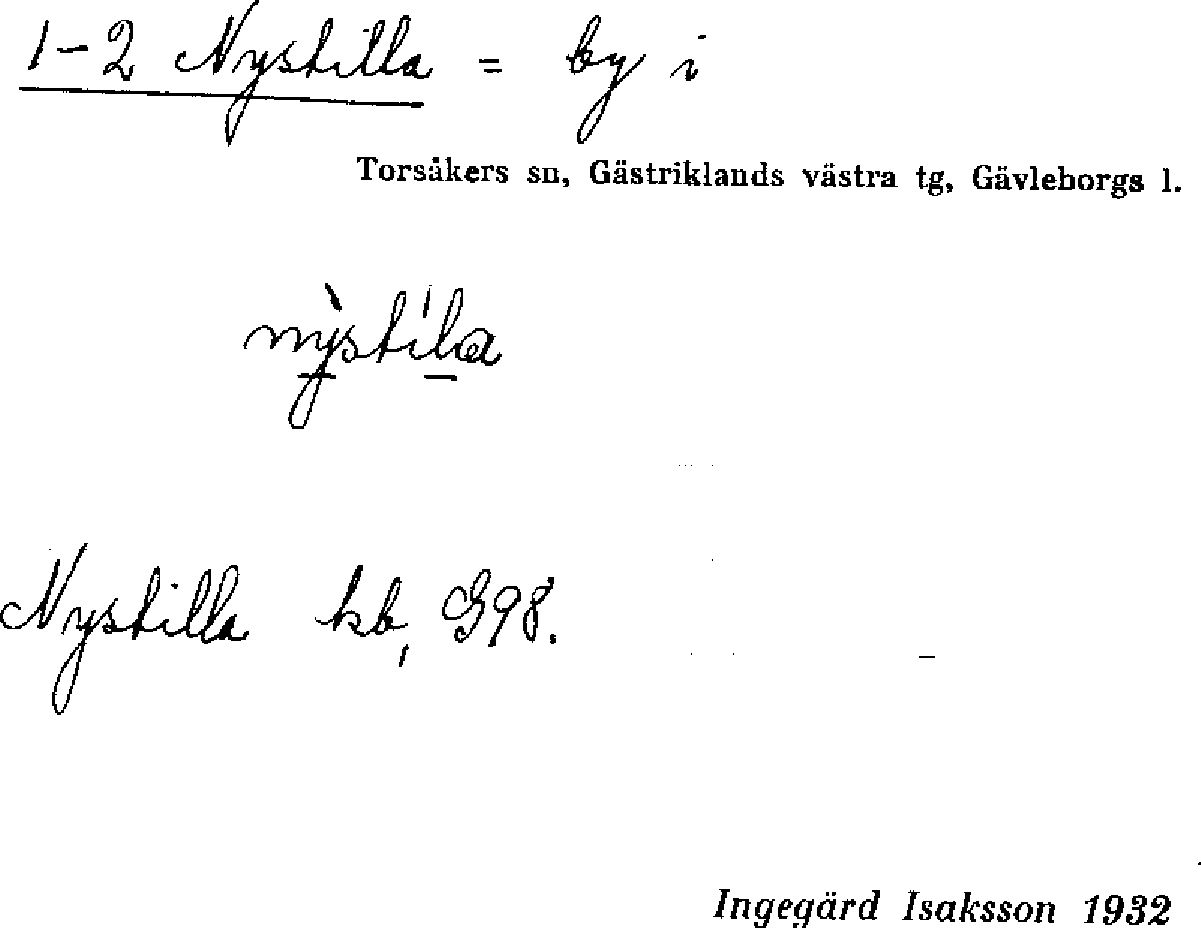 1-2 Nystilla = by i
Torsåkers sn, Gästriklands västra tg, Gävleborgs l.
Nystilla kb, G98.
Ingegärd Isaksson 1932